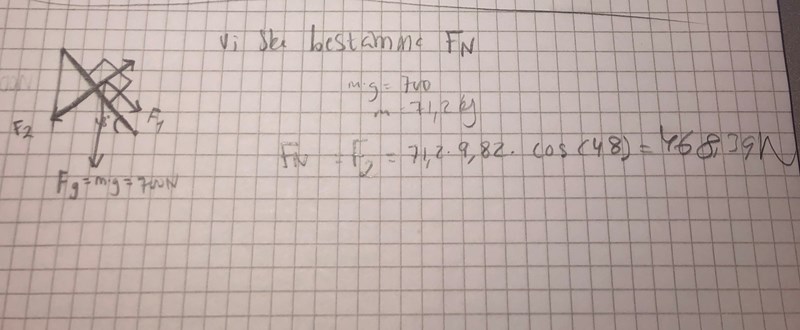 Vi ska bestämma FN
m·g = 700
m = 71,2 kg
FN = F2 = 71,2 · 9,82 · cos(48) = 468,39N
F2
F1
48°
Fg = m·g = 700N